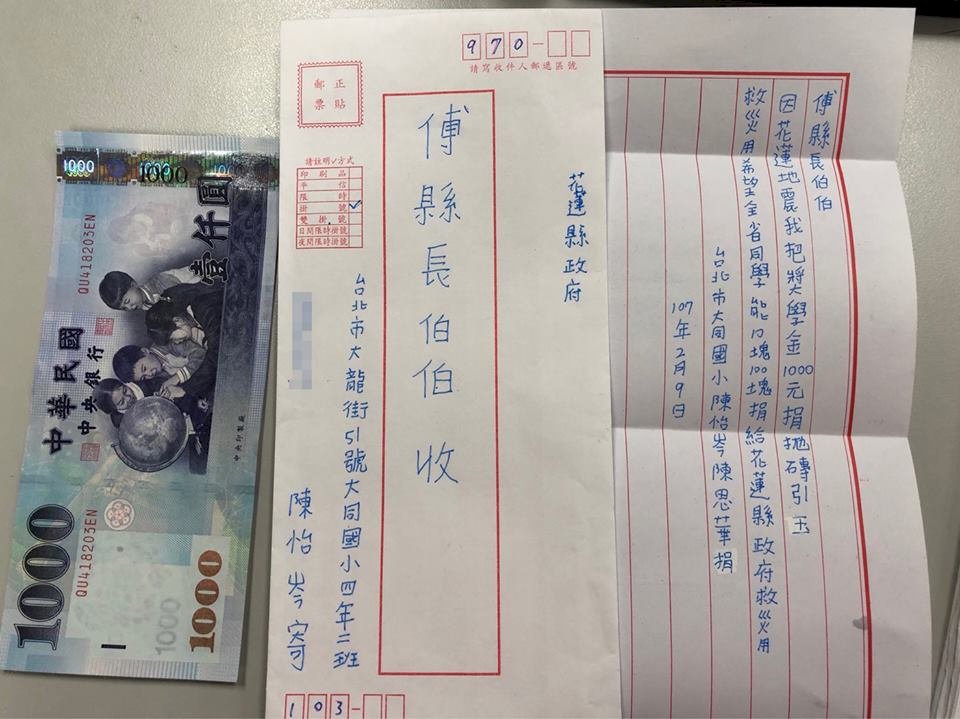 1000
1000
壹仟圓
QU418203EN
中華民國
中央銀行
中央印製廠
QU418203EN
1000
1000
1000
970-
請寫收件人郵遞區號
正貼
郵票
請註明✓方式
印刷品
平信
限時
掛號✓
雙掛號
日間限時掛號
夜間限時掛號
花蓮縣政府
傅縣長伯伯 收
台北市大龍街51號大同國小四年二班
陳怡岑寄
103-
傅縣長伯伯
因花蓮地震我把獎學金1000元捐拋磚引玉
救災用希望全省同學能10塊100塊捐給花蓮縣政府救災用
台北市大同國小陳怡岑陳恩華捐
107年2月9日